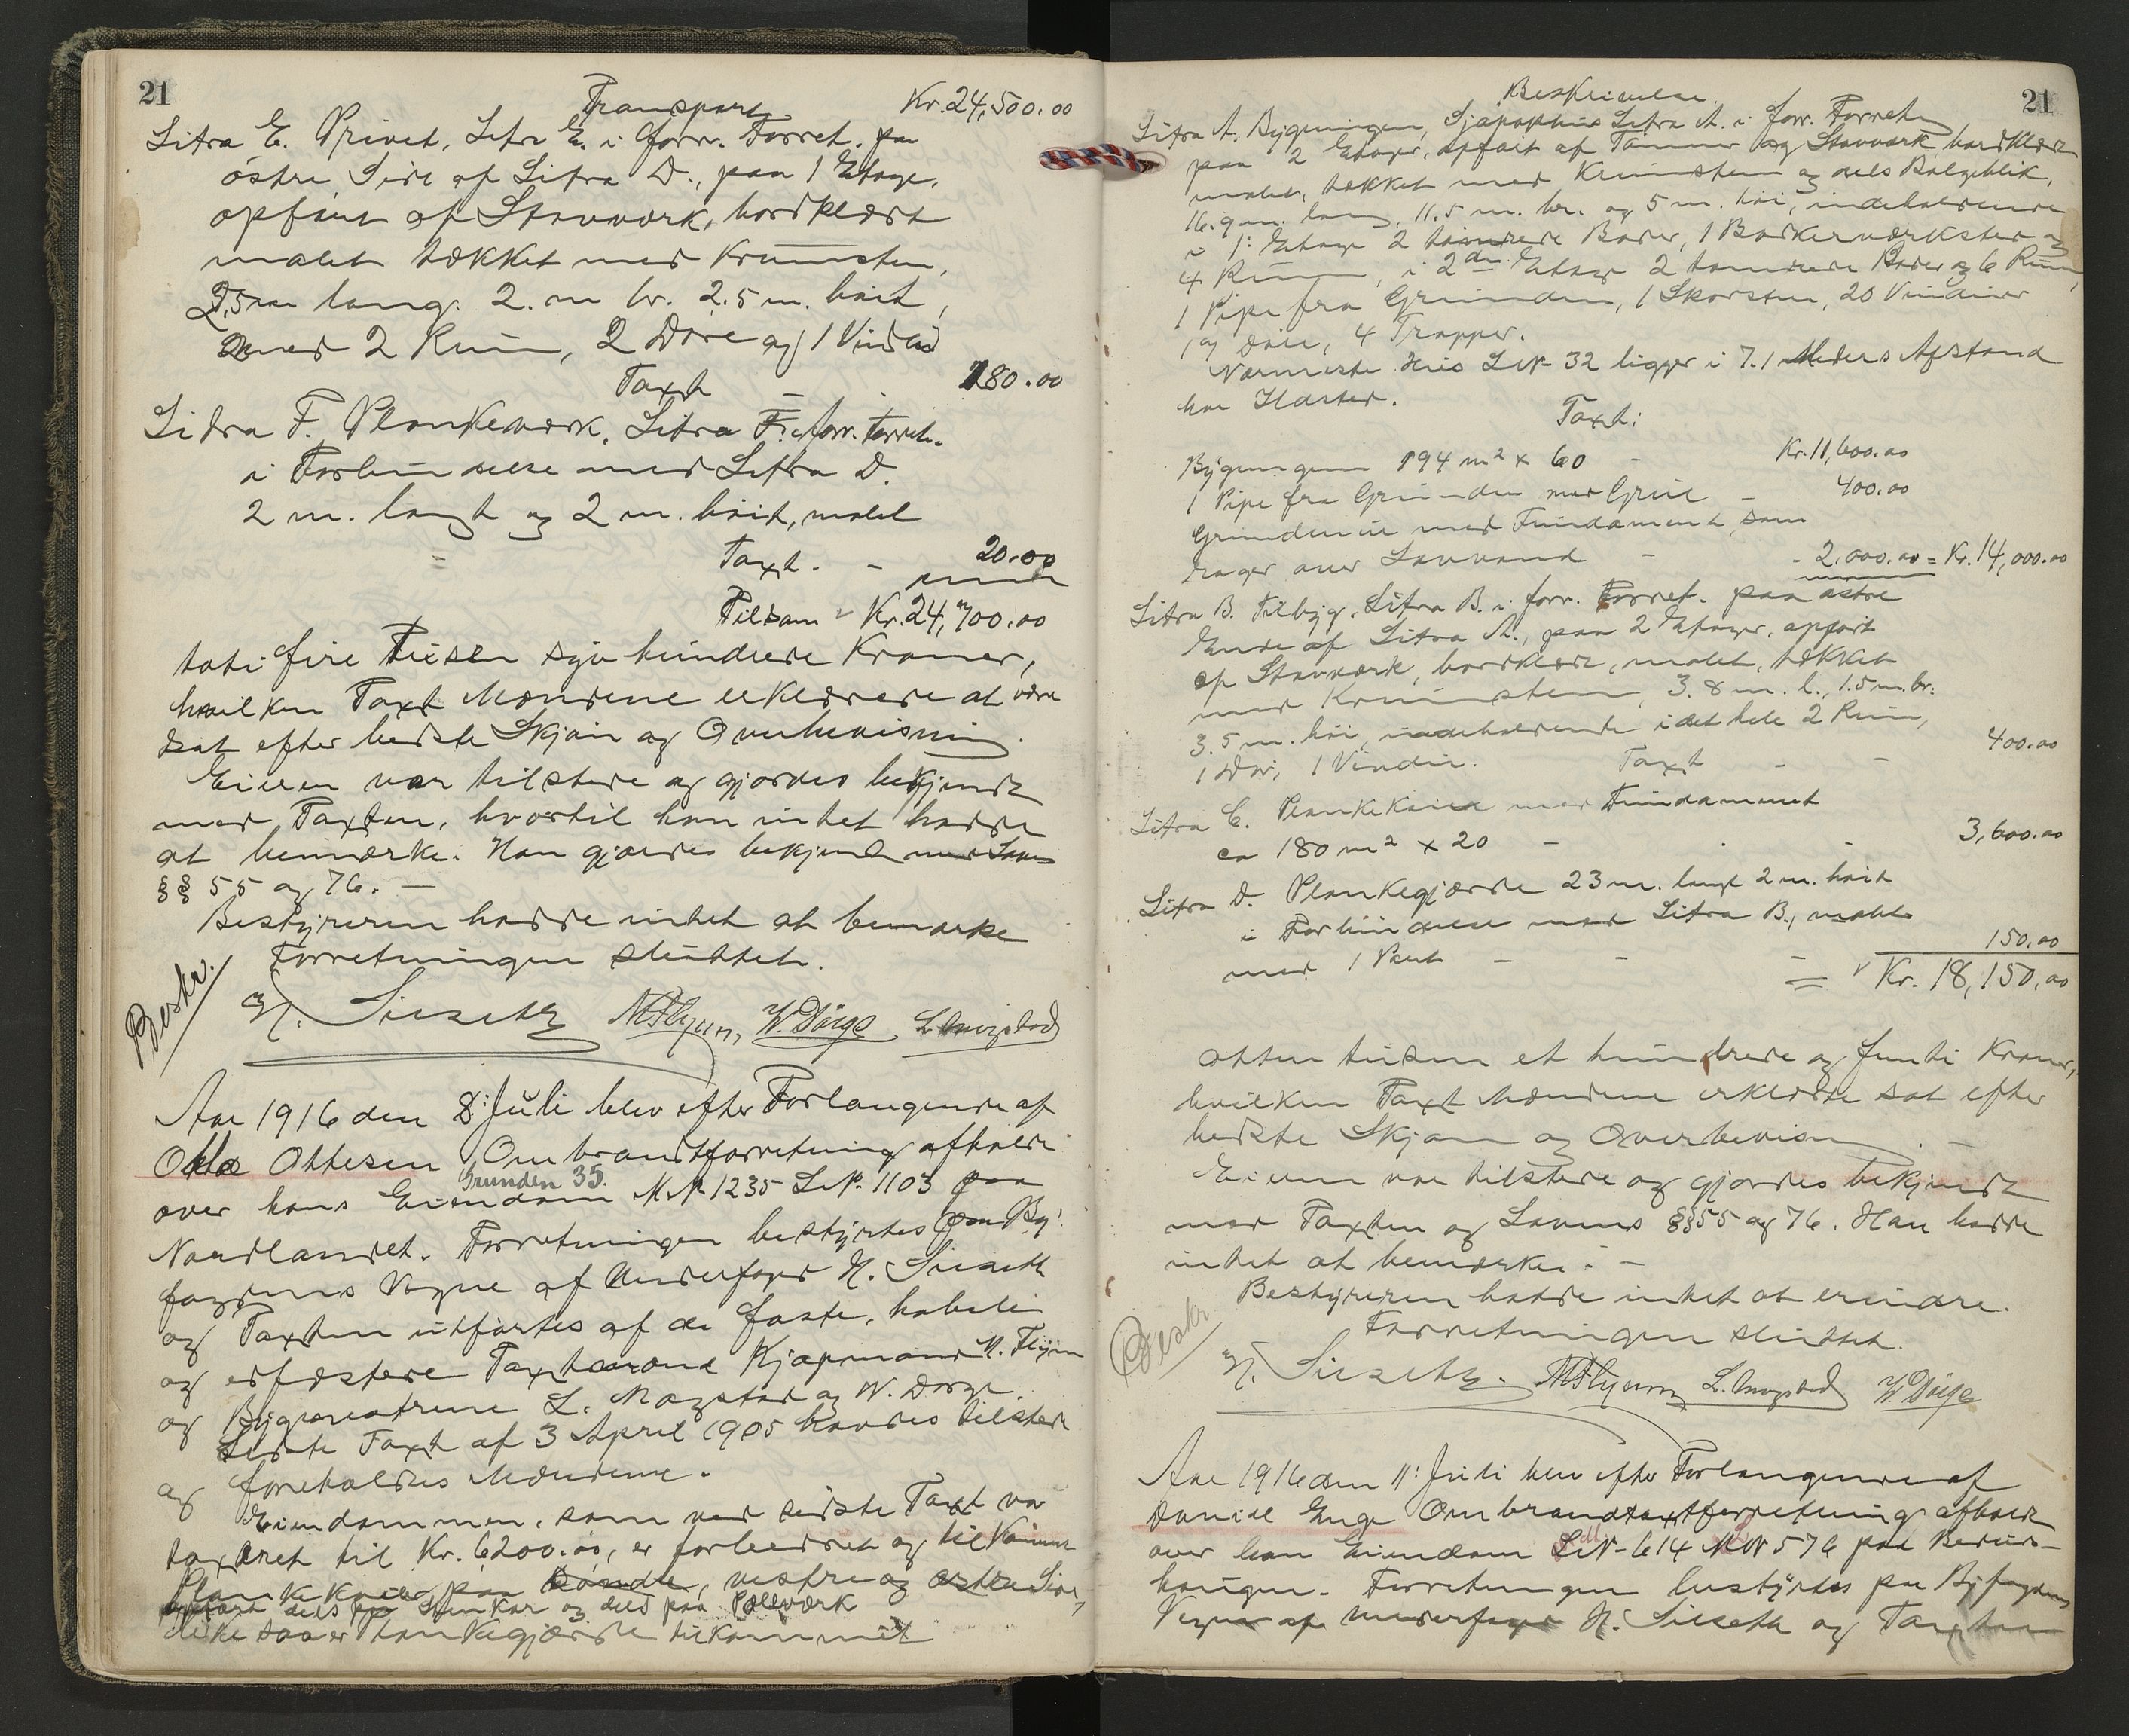 21
Transport Kr. 24,500.00
Litra E. Privet, Litr E. i forr. Forret. paa
östre Side af Litra D., paa 1 Etage,
opfört af Stavværk, bordklædt
malet tækket med Krumsten,
2,5 m lang. 2. m br. 2.5 m. höit,
med 2 Rum, 2 Döre og 1 Vindu
Taxt - 180.00
Litra F. Plankeværk, Litra F. i forr. Forretn.
i Forbindelse med Litra D.
2 m. langt og 2 m. höit, malet
Taxt. - 20.00
Tilsam = Kr. 24,700.00
toti fire Tusen syv hundrede Kroner,
hvilken Taxt Mændene erklærede at være
sat efter bedste Skjön og Overbevisning.
Eieren var tilstede og gjordes bekjendt
med Taxten, hvortil han intet hadde
at bemærke. Han gjordes bekjendt med Lovens
§§ 55 og 76. -
Bestyreren hadde intet at bemærke
Forretningen sluttet.
Beskr.
H. Siezeth M Flygum, W. Dörge L. Mogstad
Aar 1916 den 8: Juli blev efter Forlangende af
Otto Ottesen Ombrandtforretning afholdt
Grunden 35.
over hans Eiendom M.N. 1235 L.N. 1103 paa
Nordlandet. Forretningen bestyrtes paa By:
fogdens Vegne af Underfoged H. Siezeth
og Taxten utförtes af de faste, habile
og edfæstede Taxtmænd Kjøpmand M. Flygum
og Bygmestrene L. Mogstad og W. Dörge.
Sidste Taxt af 3 April 1905 havdes tilstede
og foreholdtes Mændene.
Eiendommen, som ved sidste Taxt var
taxeret til Kr. 6200.00, er forbedret og tilkommet
Plankekaier paa söndre, vestre og östre Side,
opfört dels på Stenkar og dels paa Pæleværk
like saa er Plankegjærde tilkommet
21
Beskrivelse
Litra A. Bygningen, Sjøpakhus Litra A. i forr. Forretn
paa 2 Etager, opfört af Tömmer og Stavværk bordklædt
malet, tækket med Krumsten og dels Bølgeblik,
16.9 m. lang, 11.5 m. br. og 5 m. höi, indeholdende
i 1: Etage 2 tömrede Boder, 1 Bødkerværksted og
4 Rum, i 2den Etage 2 tomrede Boder og 6 Rum,
1 Pipe fra Grunden, 1 Skorsten, 20 Vinduer
19 Döre, 4 Trapper.
Nærmeste Hus LN 32 ligger i 7.1 Meders Afstand
Taxt:
Bygningen 194 m² x 60 - Kr. 11,600.00
1 Pipe fra Grunden med Grue - 400.00
Grundmur med Fundament, som
rager over Lavvand - - 2,000.00 = Kr. 14,000.00
Litra B. Tilbyg, Litra B. i forr. Forret. paa østre
Ende af Litra A., paa 2 Etager, opfört
af Stavværk, bordklædt, malet, tækket
med Krumsten, 3.8 m. l., 1.5 m. br.
3.5 m. höi, indeholdende i det hele 2 Rum,
1 Dør, 1 Vindu. Taxt - - 400.00
Litra C. Plankekaier med Fundament
ca 180 m² x 20 - - 3,600.00
Litra D. Plankegjærde 23 m. langt 2 m. höit
i Forbindelse med Litra B., malet
med 1 Port - - - 150.00
= Kr. 18,150.00
atten tusen et hundrede og femti Kroner,
hvilken Taxt Mændene erklærte sat efter
bedste Skjøn og Overbevisn. -
Eieren var tilstede og gjordes bekjendt
med Taxten og Lovens §§ 55 og 76. Han hadde
intet at bemærke. -
Bestyreren hadde intet at erindre.
Forretningen sluttet.
Beskr
H. Siezeth. M Flygum L. Mogstad W Dörge
Aar 1916 den 11: Juli blev efter Forlangende af
Daniel Enge Ombrandtaxtforretning afholdt
over hans Eiendom LN- 614 MN 576 paa
haugen. Forretningen bestyrtes paa Byfogdens
Vegne af Underfoged H. Siezeth og Taxten